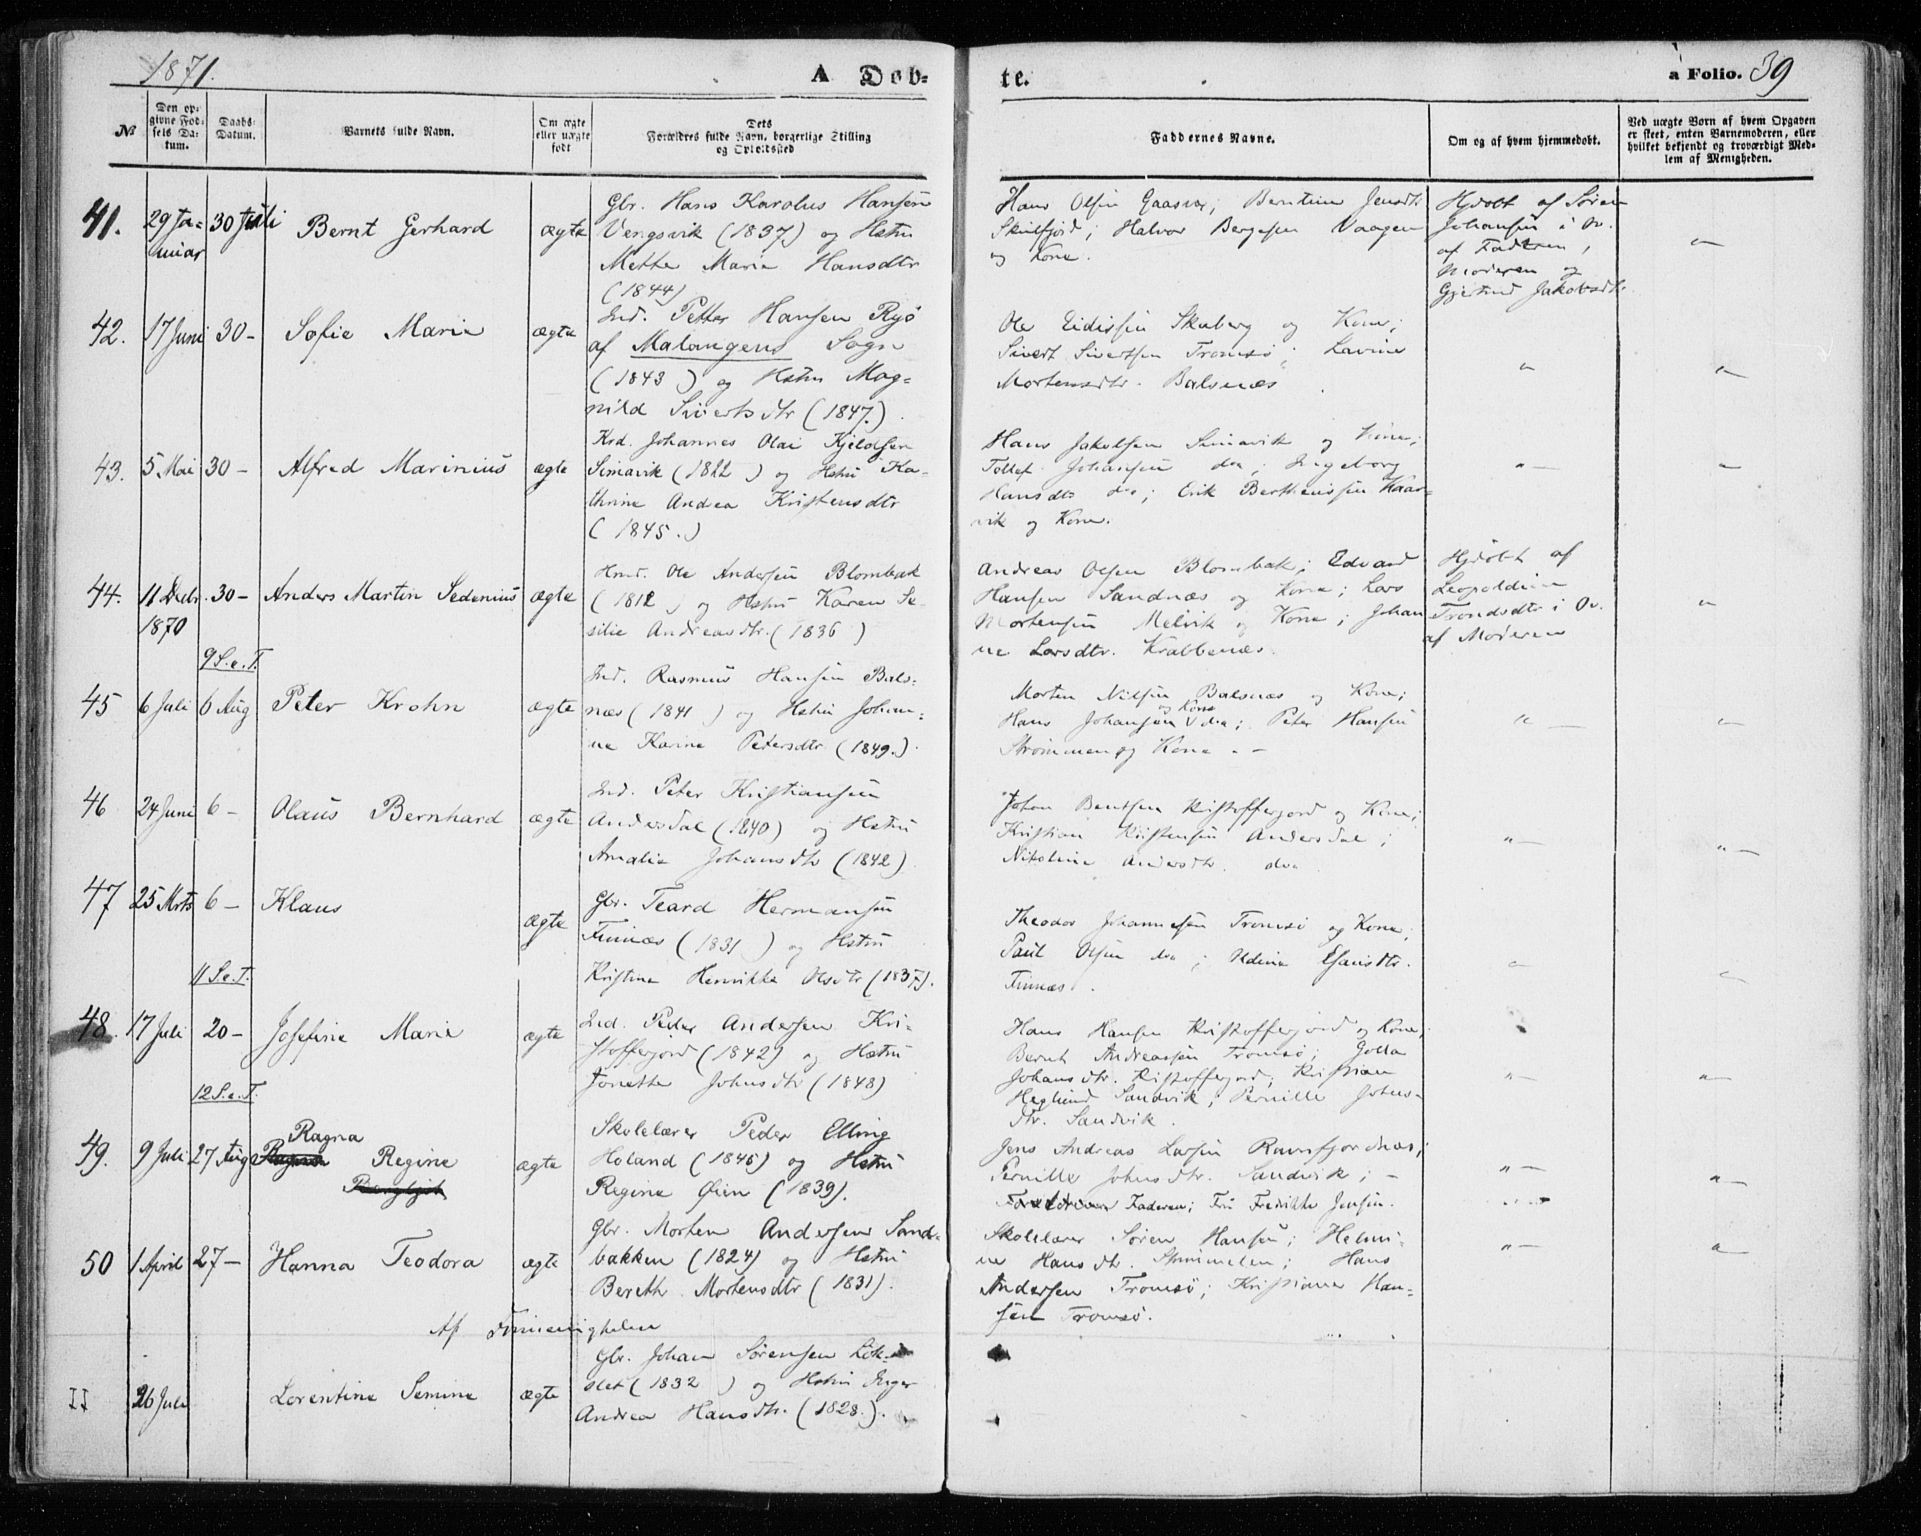 1871.
A Døb-
te.
a Folio. 39
№
Den op-
givne Fød-
sels Da-
tum.
Daabs-
Datum.
Barnets fulde Navn.
Om ægte
eller uægte
født
Dets
Forældres fulde Navn, borgerlige Stilling
og Opholdssted
Faddernes Navne.
Om og af hvem hjemmedøbt.
Ved uægte Børn af hvem Opgaven
er skeet, enten Barnemoderen, eller
hvilket bekjendt og troværdigt Med-
lem af Menigheden.
41. 29 Ja-
nuar 30 Juli Bernt Gerhard ægte
Gbr. Hans Karolus Hansen
Vengsvik (1837) og Hstru
Mette Maria Hansdtr
(1844)
Hans Olsen Gaasvær; Berntine Jensdtr
Skulsfjord; Halvor Bergesen Vaagen
og Kone.
Hjdøbt af Søren
Johansen i Ov.
af Faderen,
Moderen og
Gjertrud Jakobsdtr.
42. 17 Juni 30 - Sofie Marie ægte
Ind. Petter Hansen Ryø
af Malangens Sogn
(1843) og Hstru Mag-
nild Sivertsdtr (1847).
Ole Eidissen Skaberg og Kone;
Sivert Sivertsen Tromsø; Lavine
Mortensdtr. Balsnæs.
43. 5 Mai 30 - Alfred Marinius ægte
Krd. Johannes Olai Kjeldsen
Simavik (1822) og Hstru Ka-
thrine Andrea Kristensdtr
(1845.)
Hans Jakobsen Simavik og Kone;
Tollef Johansen do; Ingeborg
Hansdtr do; Erik Bertheussen Kaar-
vik og Kone.
44. 11 Decbr.
1870 30 - Anders Martin Sedenius ægte
Hmd. Ole Andersen Blombak
(1812) og Hstru Karen Se-
silie Andreasdtr. (1836)
Andreas Olsen Blombak; Edvard
Hansen Sandnæs og Kone; Lars
Mortensen Melvik og Kone; Johan
ne Larsdtr. Krabbenæs.
Hjdøbt af
Leopoldine
Trondsdtr i Ov.
af Moderen
9 S. e. T.
45 6 Juli 6 Aug Peter Krohn ægte
Ind. Rasmus Hansen Bals-
næs (1841) og Hstru Johan-
ne Karine Petersdtr (1849.).
Morten Nilsen Balsnæs og Kone;
Hans Johansen og Kone do; Peter Hansen
Strømmen og Kone. -
46 24 Juni 6 - Olaus Bernhard ægte
Ind. Peter Kristiansen
Andersdal (1840) og Hstru
Amalia Johansdtr (1842).
Johan Bentsen Kristofferjord og Kone;
Kristian Kristensen Andersdal;
Nikoline Andersdtr. do
47 25 Mrts 6 - Klaus ægte
Gbr. Teard Hermansen
Finnæs (1831) og Hstru
Kristine Henrikke Olsdtr (1837).
Theodor Johannesen Tromsø og Kone;
Paul Olsen do; Udine Esaisdtr.
Finnæs.
11 S. e. T.
48. 17 Juli 20 - Josefine Marie ægte
Ind. Peder Andersen Kri-
stofferjord (1842) og Hstru
Jonette Johnsdtr (1848)
Hans Hansen Kristofferjord og Kone;
Bernt Andreassen Tromsø; Golla
Johansdtr. Kristofferjord; Kristian
Heglund Sandvik; Pernille Johns-
dtr. Sandvik.
12 S. e. T.
49. 9 Juli 27 Aug Ragna Regine ægte
Skolelærer Peder Elling
Holand (1845) og Hstru
Regine Øien (1839).
Jens Andreas Larsen Ravnfjordnæs;
Pernille Johnsdtr. Sandvik; -
Forældrene Faderen; Fru Fredrikke Jensen.
50 1 April 27 - Hanna Teodora ægte
Gbr. Morten Andersen Sand-
bakken (1824) og Hstru
Bereth Mortensdtr (1831).
Skolelærer Søren Hansen; Helmi-
ne Hansdtr. Strimmelen; Hans
Andersen Tromsø; Kristiane Han-
sen Tromsø.
Af Finnemenigheden
II 26 Juli Lorentine Semine ægte
Gbr. Johan Sørensen Løk-
slet (1832) og Hstru Inger
Andrea Hansdtr. (1828.).